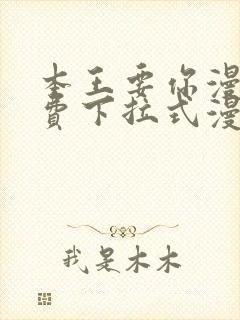 本王要你漫
費下拉式漫
我是木木